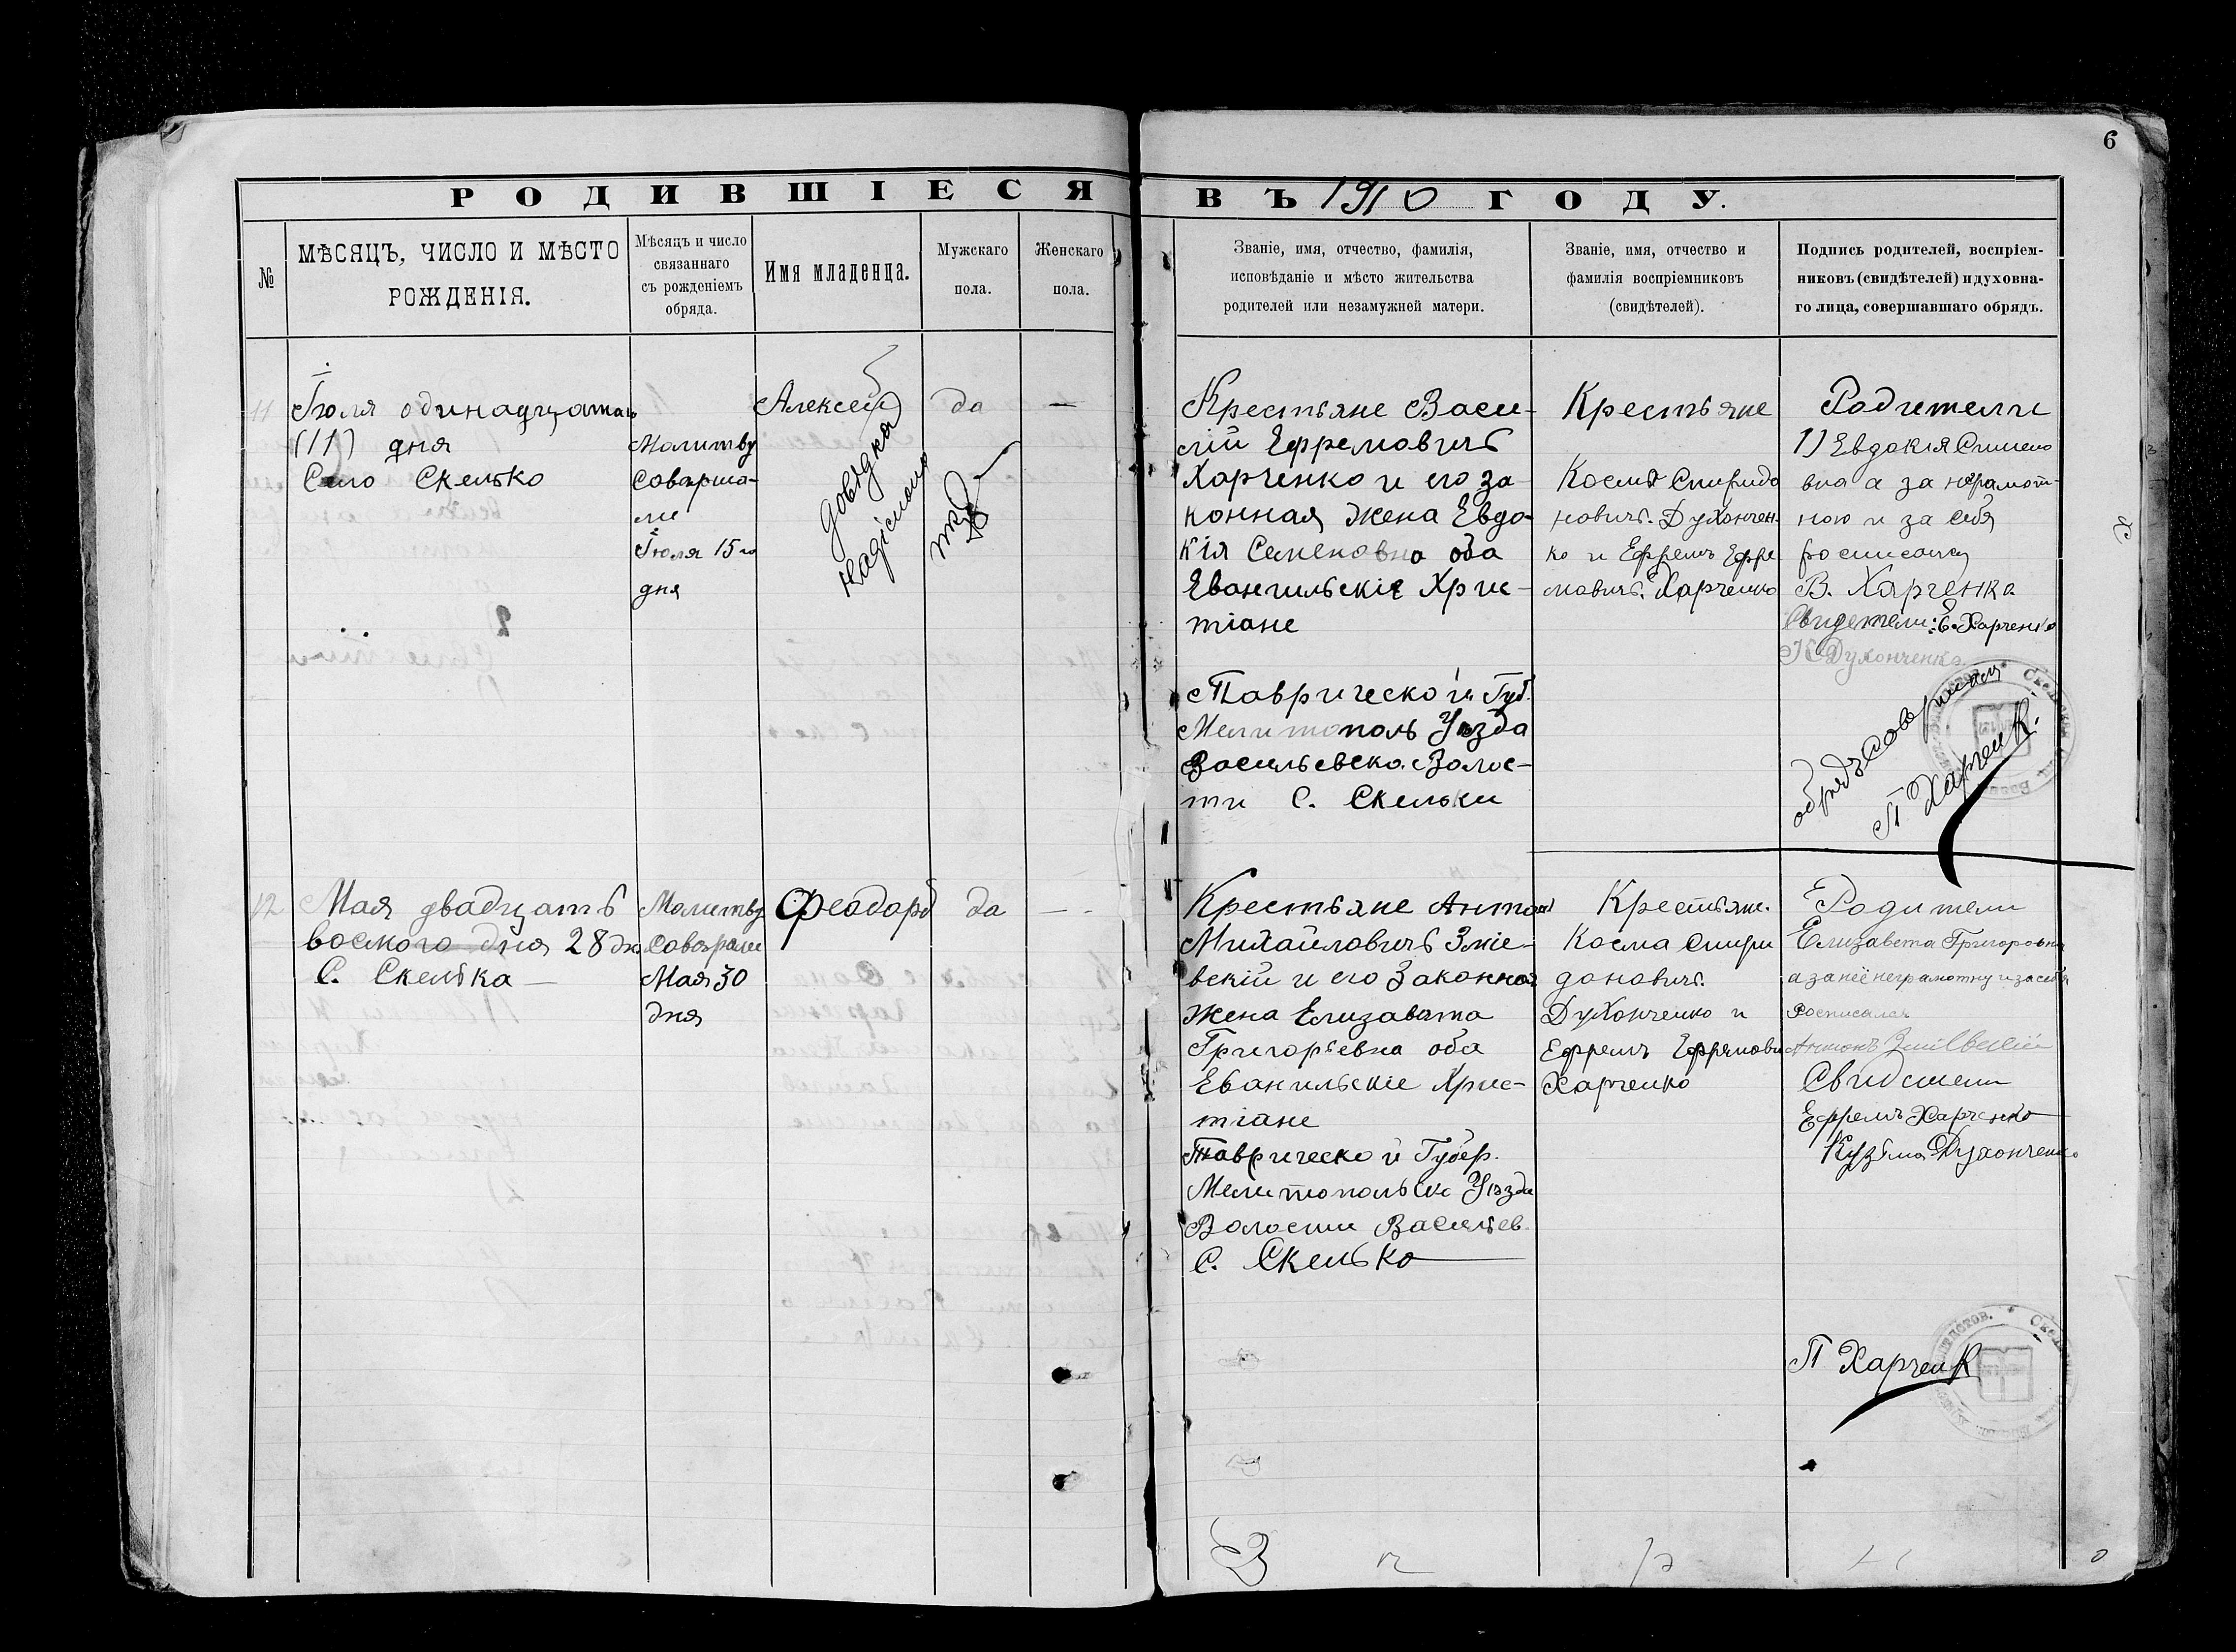 6
РОДИВШІЕСЯ ВЪ 1910 ГОДУ.
№
МѢСЯЦЪ, ЧИСЛО И МѢСТО
РОЖДЕНІЯ.
Мѣсяцъ и число
связаннаго
съ рожденіемъ
обряда.
Имя младенца.
Мужскаго
пола.
Женскаго
пола.
Званіе, имя, отчество, фамилія,
исповѣданіе и мѣсто жительства
родителей или незамужней матери.
Званіе, имя, отчество и
фамилія воспріемниковъ
(свидѣтелей).
Подпись родителей, воспріем-
никовъ (свидѣтелей) и духовна-
го лица, совершавшаго обрядъ.
11
Іюля одинадцатаго
(11) дня
Село Скелько
Молитву
Соверша-
ли
Іюля 15го
дня
Алексей
довідка
надіслано
да
—
Крестьяне Васи-
лій Ефремовичъ
Харченко и его за
конная жена Евдо-
кія Семеновна оба
Евангильскіе Хрис-
тіане
Таврической Губ.
Мелитополь Уезда
Васильевско. Волос-
ти С. Скельки
Крестьяне
Косма Спиридо
новичъ. Духончен
ко и Ефремъ Ефре
мовичъ. Харченко
Родители
1) Евдокія Симено
вна а за неграмот-
ною и за себя
росписался
В. Харченка
Свидетели: Е. Харченко
К Духонченко
обрядъ совершал
П Харченк.
12
Мая двадцать
восмого дня 28 дн.
С. Скелька —
Молитву
Совершали
Мая 30
дня
Феодоръ
да
—
Крестьяне Антон
Михайловичъ Зміе-
вскій и его Законная
жена Елизавета
Григорьевна оба
Евангильскіе Хрис-
тіане
Таврической Губер.
Мелитопольск Уезда
Волости Васильев.
С. Скелько
Крестьяне.
Косма Спири
доновичъ.
Духонченко и
Ефремъ Ефремови
Харченко
Родители
Елизавета Григоровна
а за неё неграмотну и за себя
Росписался
Антонъ Змиевский
Свидетели
Ефремъ Харченко
Кузьма Духонченко
П Харченк